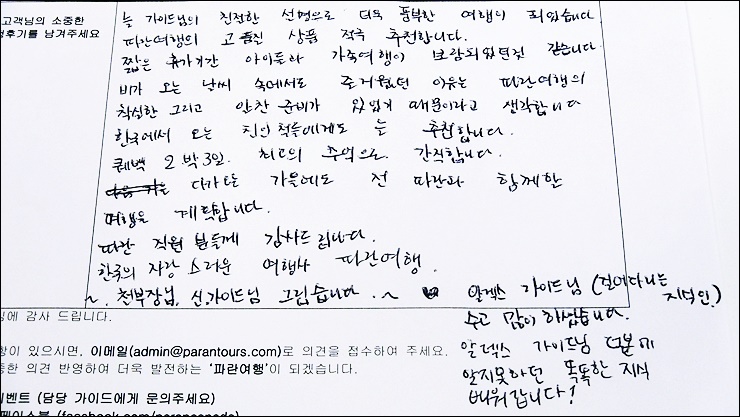 고객님의 소중한
후기를 남겨주세요
늘 가이드님의 친절한 설명으로 더욱 풍부한 여행이 되었습니다
파란여행의 고품진 상품 적극 추천합니다.
짧은 휴가기간 아이들과 가족여행이 보람되었던것 같습니다.
비가 오는 날씨 속에서도 즐거웠던 이유는 파란여행의
착실한 그리고 알찬 준비가 있었기 때문이라고 생각합니다
한국에서 오는 친인척들에게도 늘 추천합니다.
퀘백 2박3일. 최고의 추억으로 간직합니다.
다가오는 가을에도 전 파란과 함께한
여행을 계획합니다.
파란 직원분들께 감사드립니다.
한국의 자랑스러운 여행사 파란여행.
~ 천부장님, 신가이드님 그립습니다. ~
알렉스 가이드님 (걸어다니는
지식인)
수고 많이 하셨습니다.
알렉스 가이드님 덕분에
알지못하던 똑똑한 지식
배워갑니다!
에 감사 드립니다.
항이 있으시면, 이메일(admin@parantours.com)로 의견을 접수하여 주세요.
중한 의견 반영하여 더욱 발전하는 '파란여행'이 되겠습니다.
벤트 (담당 가이드에게 문의주세요)